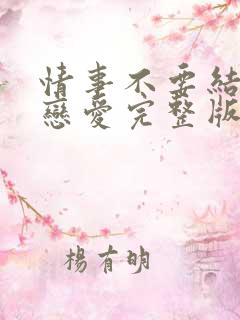 情事不要結
戀愛完整版
楊有明